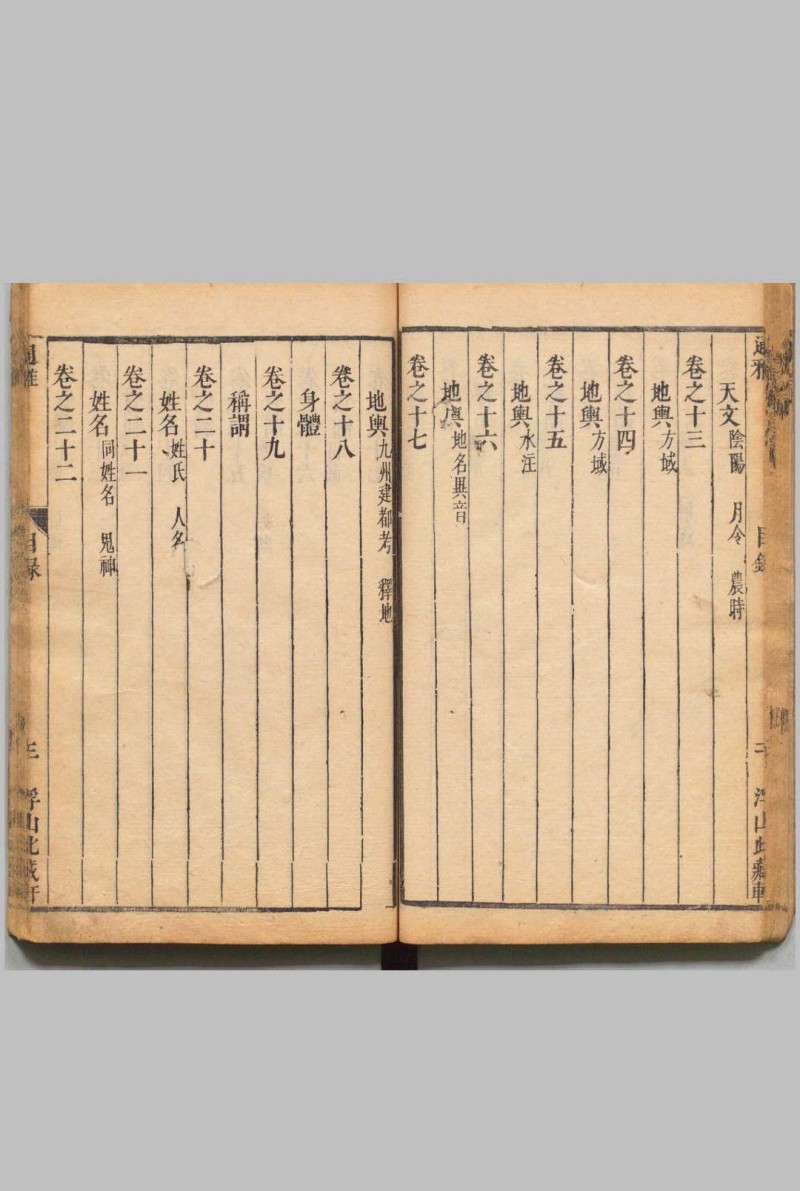 通雅
目錄
二
浮山此藏軒
天文 陰陽 月令 農時
卷之十三
地輿 方域
卷之十四
地輿 方域
卷之十五
地輿 水注
卷之十六
地輿 地名異音
卷之十七
地輿 九州建都考 釋地
卷之十八
身體
卷之十九
稱謂
卷之二十
姓名 姓氏 人名
卷之二十一
姓名 同姓名 鬼神
卷之二十二
通雅
目录
三
浮山此藏軒